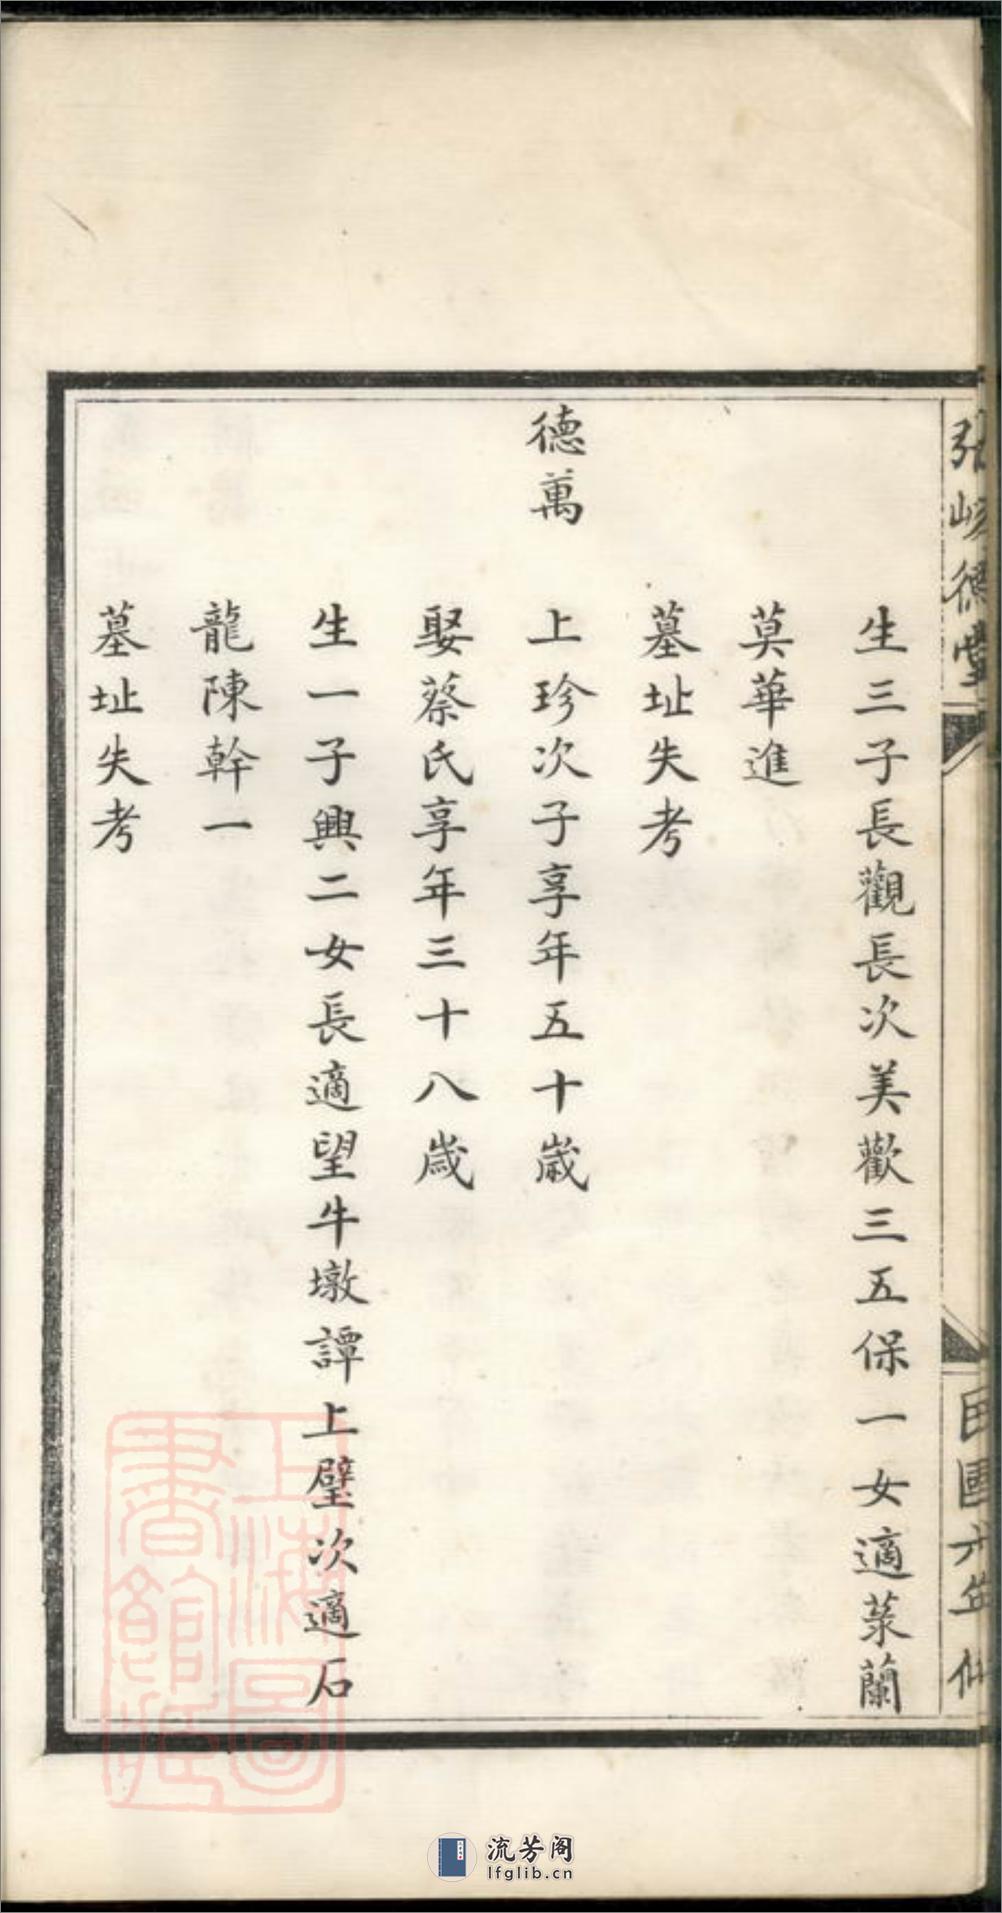 德堂
生三子長觀長次美歡三五保一女適菉蘭
莫華進
墓址失考
德萬
上珍次子享年五十歲
娶蔡氏享年三十八歲
生一子興二女長適望牛墩譚上璧次適石
龍陳幹一
墓址失考
上海圖
書館藏
流芳阁
lfglib.cn